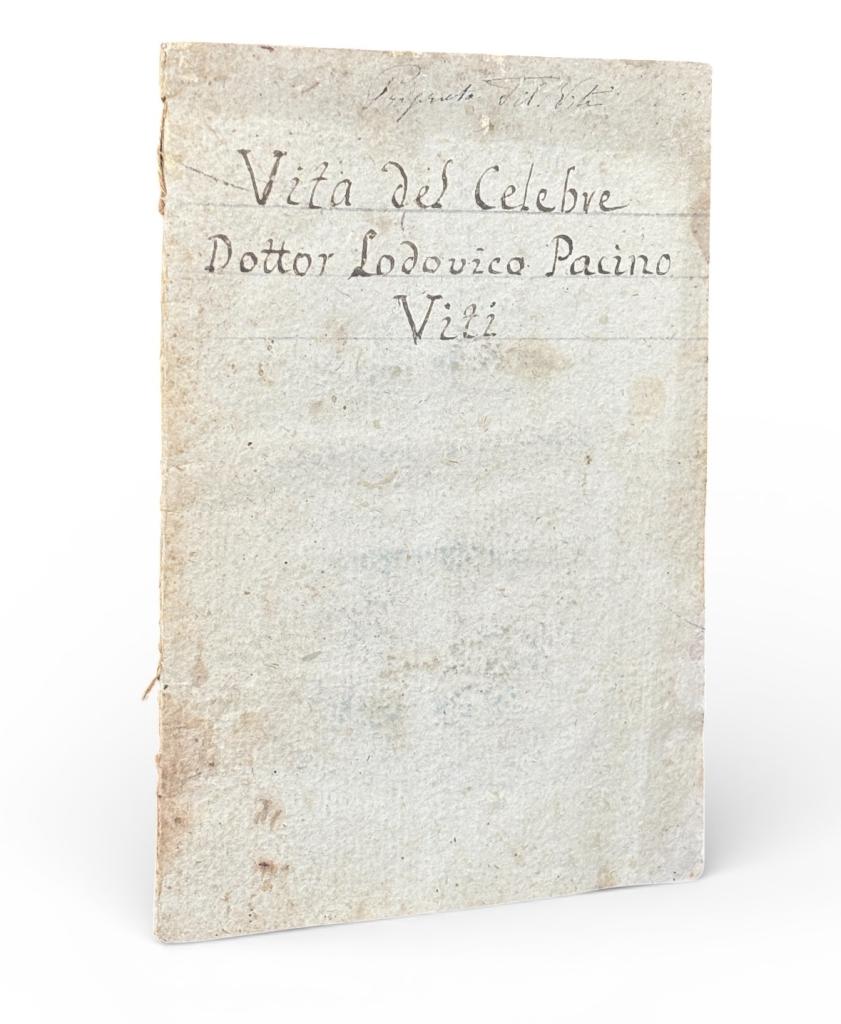 Viti
Vita del Celebre
Dottor Lodovico Pacino
Viti